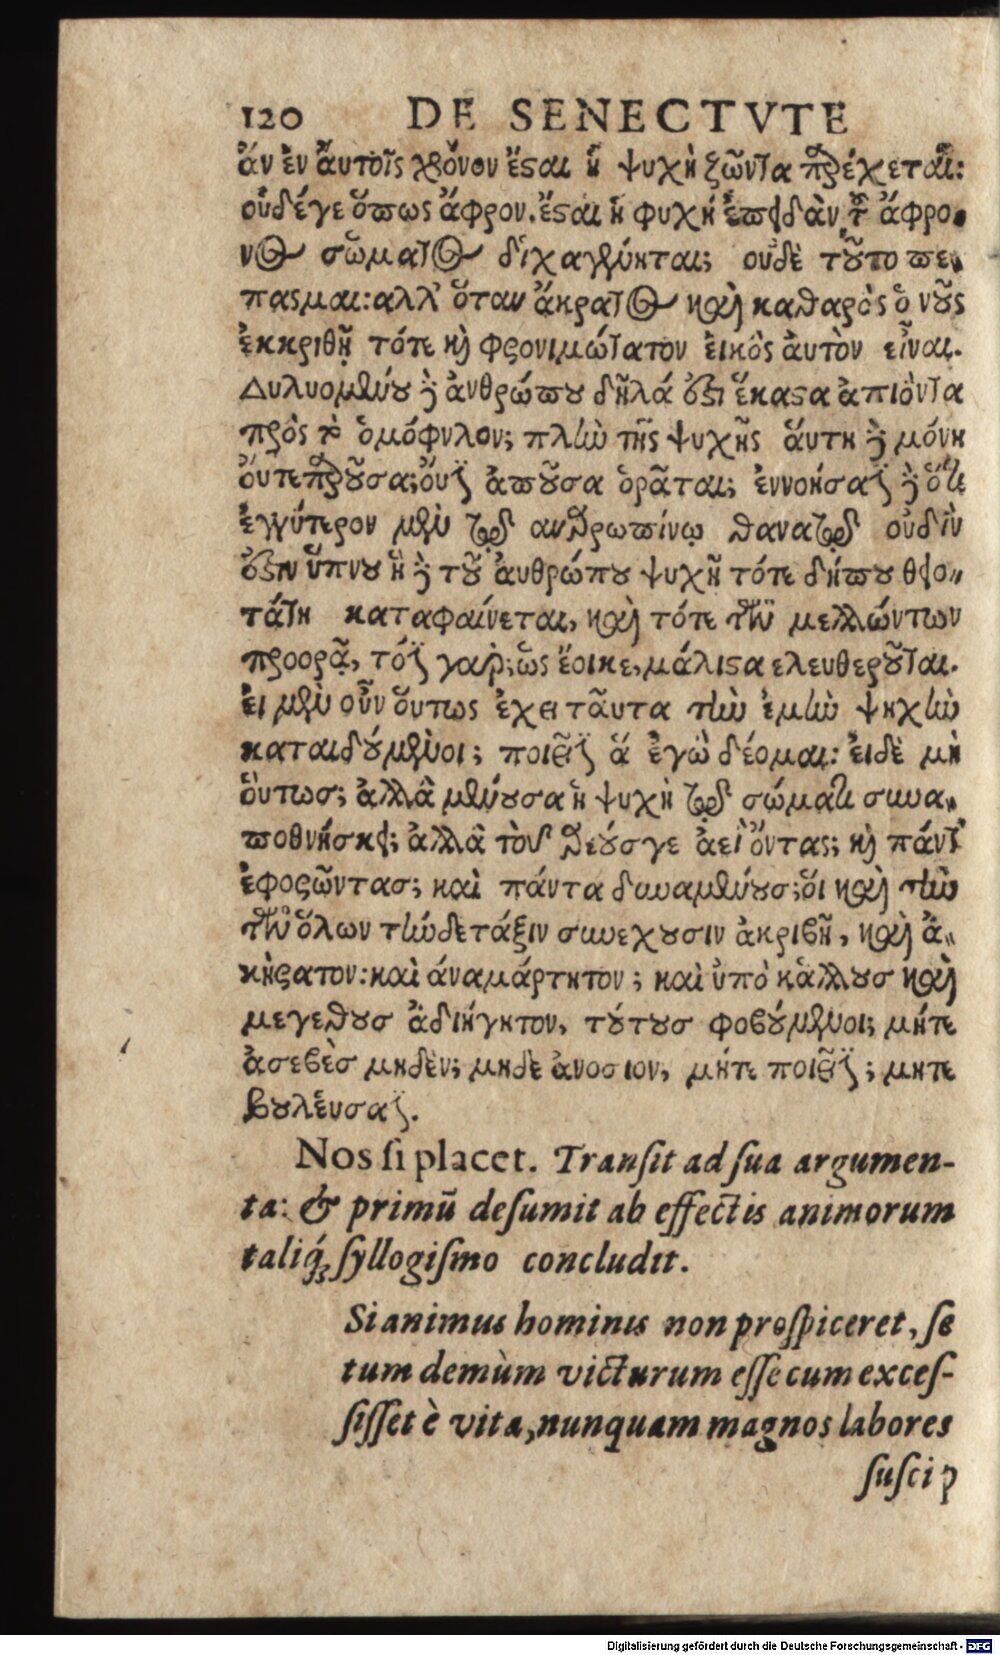 120 DE SENECTVTE
ἄν ἐν ἅυτοῖς χρόνον ἔςαι ἡ ψυχὴ ζῶντα παρέχεται:
ουδέγε ὅπως ἄφρον.ἔςαι ἡ φυχή ἐπειδὰν τοῦ ἄφρο-
νος σώματος δίχαγένηται; ουδὲ τοῦτο πε-
παςμαι:αλλ' ὅταν ἄκρατος καὶ καθαρὸς ὁ νοῦς
ἐκκριθῇ τότε καὶ φρονιμώτατον ἐικὸς ἀυτὸν εἶναι.
Δυλυομένου δὲ ἀνθρώπου δῆλά ἐςι ἕκαςα ἀπιόντα
πρὸς τὸ ὁμόφυλον; πλὼ τῆς ψυχῆς ἅυτη δὲ μόνη
ὄυτεπαροῦσα;ὄυτε ἀποῦσα ὁρᾶται; ἐννοήσατε δὲ ὅτι
ἐγγύτερον μὲν τῷ ανθρωπίνῳ θανατῳ οὐδὲν
ἐςιν ὕπνου ἡ δὲ τοῦ ἀυθρώπου ψυχῆ τότε δήπου θειο-
τάτη καταφαίνεται, καὶ τότε τῶν μελλώντων
προορᾷ, τότε γαρ;ὡς ἔοικε,μάλιςα ελευθεροῦται.
ἐι μὲν οὖν ὅυτως ἐχει τᾶυτα τὴν ἐμὴν ψηχὴν
καταιδούμενοι; ποιεῖτε ἅ ἐγὼ δέομαι: ἐιδὲ μὴ
ὅυτωσ; ἀλλὰ μένουσα ἡ ψυχὴ τῷ σώματι συνα-
ποθνήσκει; ἀλλὰ τὸυς θεούσγε ἀεὶ ὄντας; καὶ πάντ'
ἐφορῶντασ; καὶ πάντα δυναμένους;ὁι καὶ τὴν
τῶν ὅλων τὴνδετάξιν συνεχουσιν ἀκριβῆ, καὶ ἀ-
κήρατον:καὶ ἀναμάρτητον; καὶ ὑπὸ κάλλουσ καὶ
μεγεθουσ ἀδιήγητον, τούτουσ φοβούμενοι; μήτε
ἀσεβὲσ μηδὲν; μηδὲ ἀνοσιον, μήτε ποιεῖτε; μητε
βουλέυσατε.
Nos si placet. Transit ad sua argumen-
ta: & primū desumit ab effectis animorum
taliq́; syllogismo concludit.
Si animus hominis non prospiceret, se
tum demùm victurum esse cum exces-
sisset è vita, nunquam magnos labores
suscip
Digitalisierung gefördert durch die Deutsche Forschungsgemeinschaft - DFG